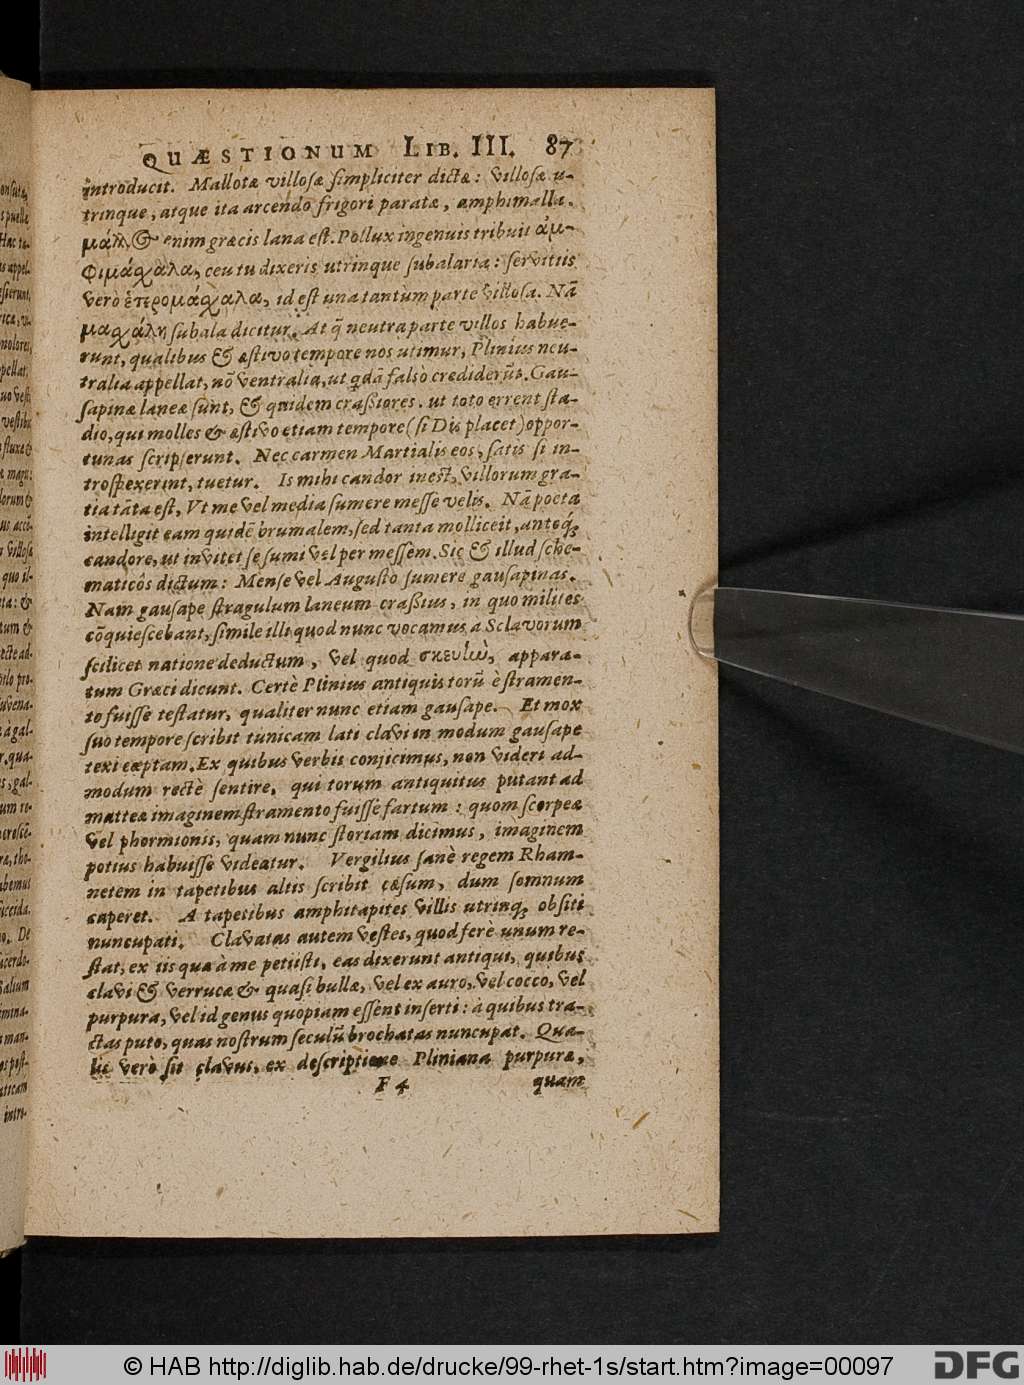 QUÆSTIONUM LIB. III. 87
introducit. Mallotæ villosæ simpliciter dictæ: villosæ u-
trinque, atque ita arcendo frigori paratæ, amphimalla.
enim græcis lana est. Pollux ingenuis tribuit ἀμ-
φιμάχαλα, ceu tu dixeris utrinque subalaria: servitiis
verò ἑτερομάχαλα, id est una tantum parte villosa. Nā
μαχάλη subala dicitur. At q̃ neutra parte villos habue-
runt, qualibus & æstivo tempore nos utimur, Plinius neu-
tralia appellat, nō ventralia, ut qdā falsò crediderūt. Gau-
sapinæ laneæ sunt, & quidem craßiores. ut toto errent sta-
dio, qui molles & æstivo etiam tempore (si Diis placet) oppor-
tunas scripserunt. Nec carmen Martialis eos, satis si in-
trospexerint, tuetur. Is mihi candor inest, villorum gra-
tia tāta est, Ut me vel media sumere messe velis. Nā poeta
intelligit eam quidē brumalem, sed tanta molliceit, antoq́;
candore, ut invitet se sumi vel per messem. Sic & illud sche-
maticôs dictum: Mense vel Augusto sumere gausapinas.
Nam gausape stragulum laneum craßius, in quo milites
cōquiescebant, simile illi quod nunc vocamus a Sclavorum
scilicet natione deductum, vel quod appara-
tum Græci dicunt. Certè Plinius antiquis torū è stramen-
to fuisse testatur, qualiter nunc etiam gausape. Et mox
suo tempore scribit tunicam lati clavi in modum gausape
texi cæptam. Ex quibus verbis conjicimus, non videri ad-
modum rectè sentire, qui torum antiquitus putant ad
matteæ imaginem stramento fuisse fartum: quom scorpeæ
vel phormionis, quam nunc storiam dicimus, imaginem
potius habuisse videatur. Vergilius sanè regem Rham-
netem in tapetibus altis scribit cæsum, dum somnum
caperet. A tapetibus amphitapites villis utrinq; obsiti
nuncupati. Clavatas autem vestes, quod ferè unum re-
stat, ex iis quæ à me petiisti, eas dixerunt antiqui, quibus
clavi & verrucæ & quasi bullæ, vel ex auro, vel cocco, vel
purpura, vel id genus quopiam essent inserti: à quibus tra-
ctas puto, quas nostrum seculū brochatas nuncupat. Qua-
lis verò sit clavus, ex descriptione Pliniana purpuræ,
F 4 quam
© HAB http://diglib.hab.de/drucke/99-rhet-1s/start.htm?image=00097
DFG